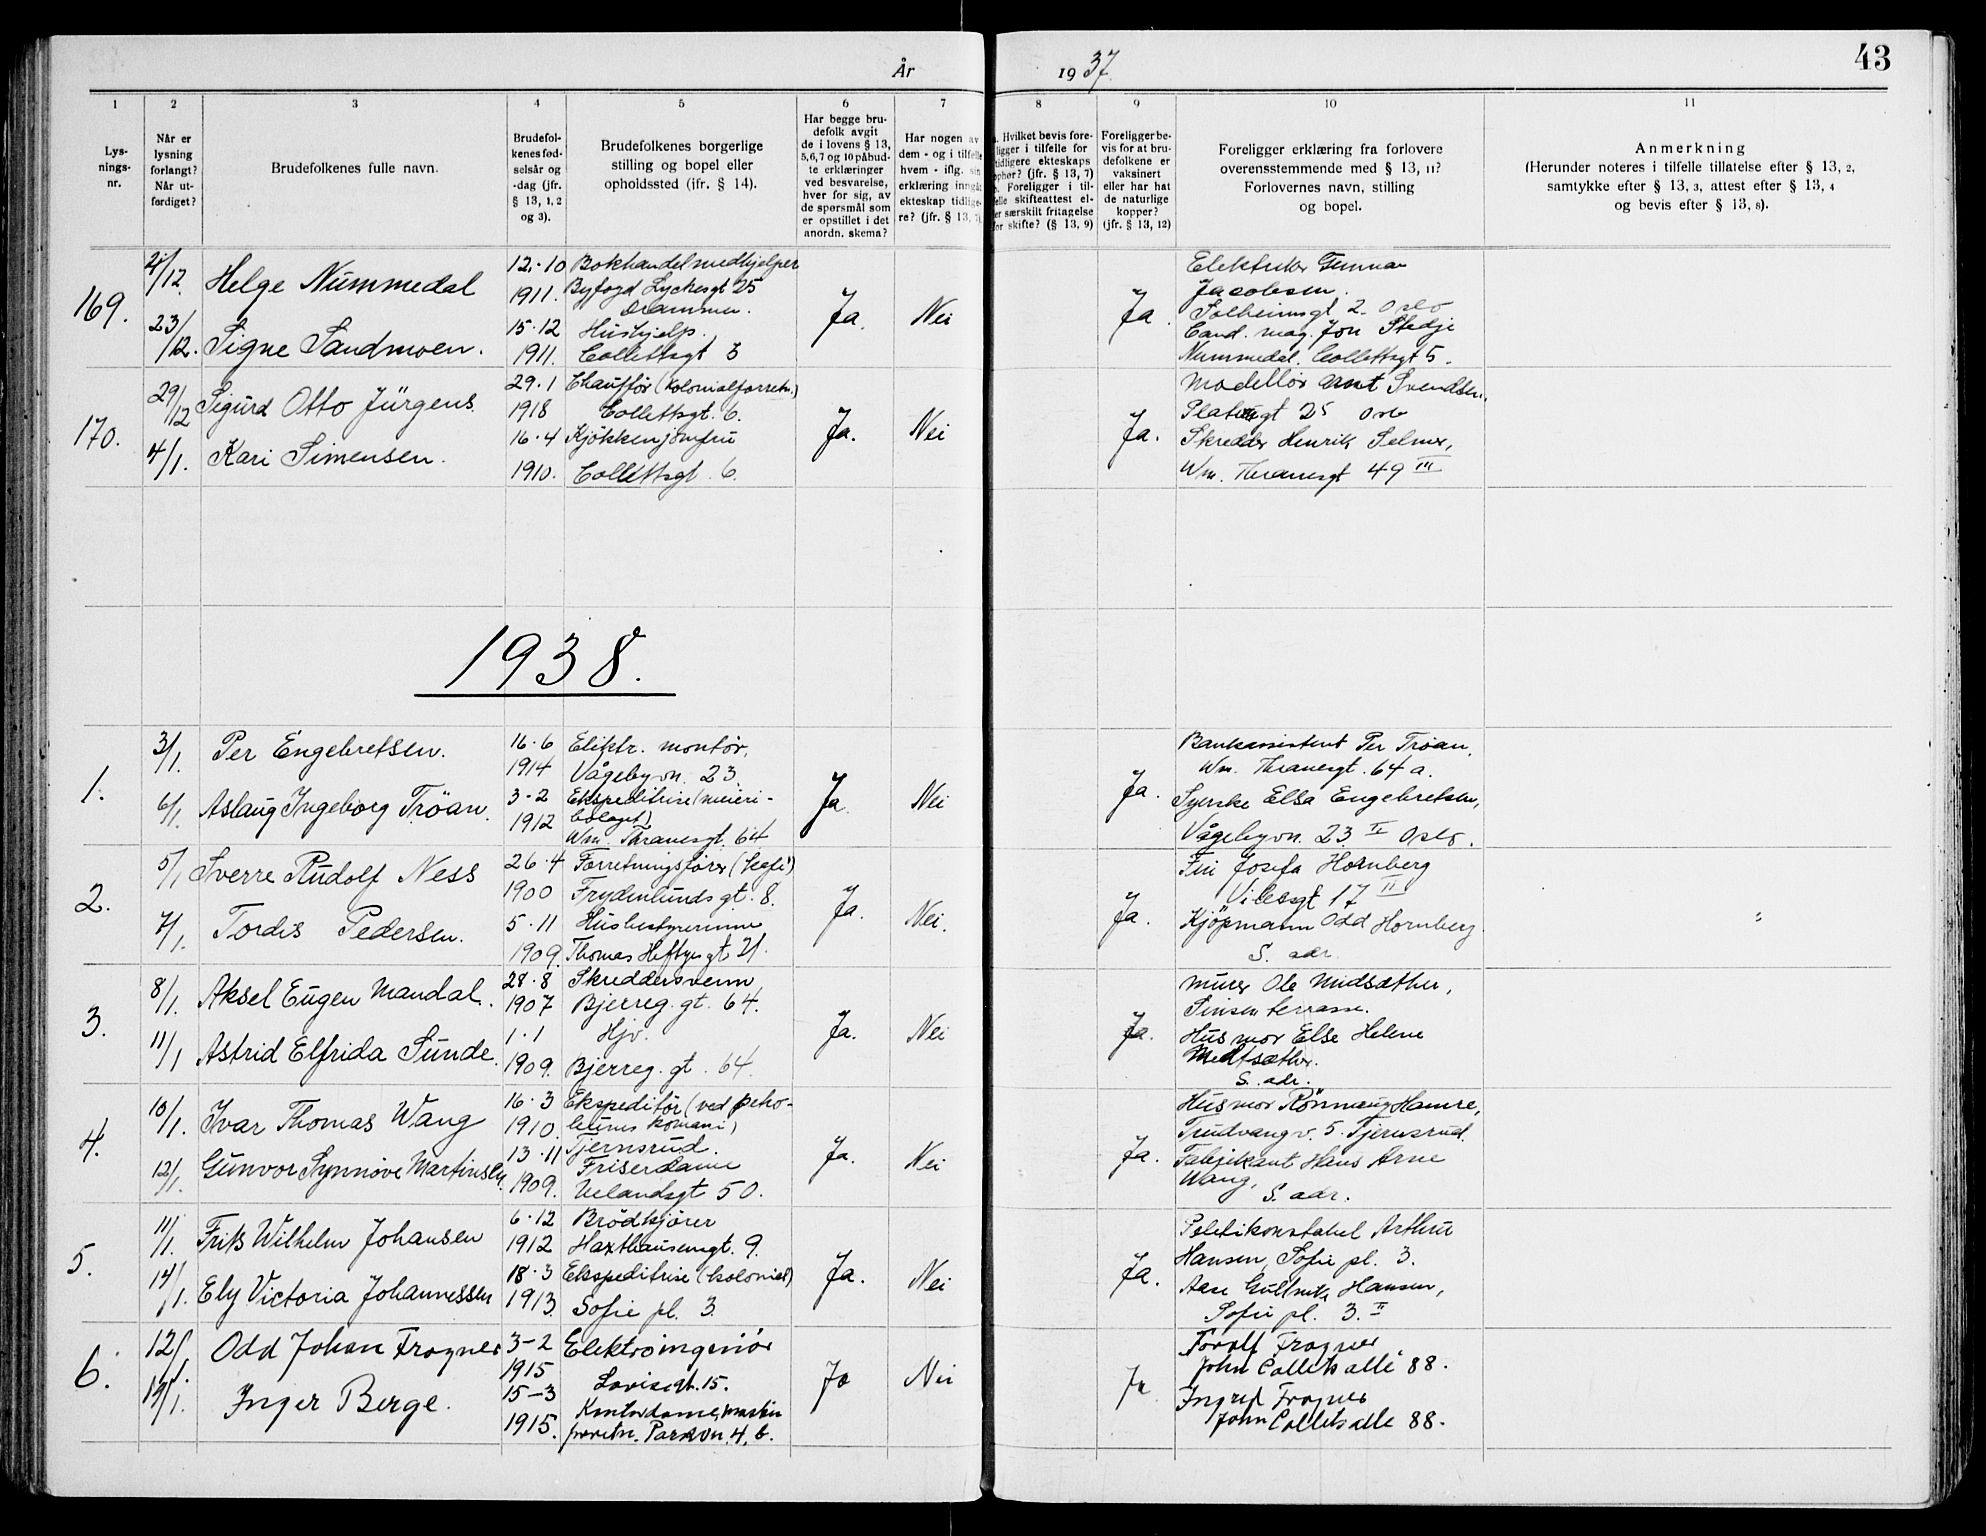 År 1937. 43
1 2 3 4 5 6 7 8 9 10 11
Lys-
nings-
nr.
Når er
lysning
forlangt?
Når ut-
ferdiget?
Brudefolkenes fulle navn.
Brudefol-
kenes fød-
selsår og
-dag (jfr.
§ 13, 1, 2
og 3).
Brudefolkenes borgerlige
stilling og bopel eller
opholdssted (jfr. § 14).
Har begge bru-
defolk avgit
de i lovens § 13,
5,6,7 og 10 påbud-
te erklæringer
ved besvarelse,
hver for sig, av
de spørsmål som
er opstillet i det
anordn. skema?
Har nogen av
dem - og i tilfelle
hvem - iflg. sin
erklæring inngått
ekteskap tidlige-
re? (jfr. § 13, 7)
Hvilket bevis fore-
ligger i tilfelle for
tidligere ekteskaps
ophør? (jfr. § 13, 7)
Foreligger i til-
felle skifteattest el-
ler særskilt fritagelse
for skifte? (§ 13, 9)
Foreligger be-
vis for at bru-
defolkene er
vaksinert
eller har hat
de naturlige
kopper?
(jfr. § 13, 12)
Foreligger erklæring fra forlovere
overensstemmende med § 13, 11?
Forlovernes navn, stilling
og bopel.
Anmerkning
(Herunder noteres i tilfelle tillatelse efter § 13, 2,
samtykke efter § 13, 3, attest efter § 13, 4
og bevis efter § 13, 8).
169.
21/12.
23/12.
Helge Nummedal
Signe Sandmoen.
12.-10
1911.
15.12
1911.
Bokhandelmedhjelper
Byfogd Lyckesgt 25
Drammen.
Hushjelp.
Collettsgt 3
Ja.
Nei
Ja.
Elektriker Gunnar
Jacobsen.
Solheimsgt 2. Oslo
Cand. mag. Jon Stedje
Nummedal. Collettsgt 5.
170.
29/12
4/1.
Sigurd Otto Jürgens.
Kari Simensen.
29.1
1918
16.4
1910.
Chauffør (kolonialforretn.)
Collettsgt. 6.
Kjøkkenjomfru
Collettsgt. 6.
Ja.
Nei
Ja.
Modellør Arnt Svendsen,
gt 25 Oslo
Skredder Henrik Selmer,
Wm. Thranesgt 49 III
1938.
1.
3/1.
6/1.
Per Engebretsen.
Aslaug Ingeborg Trøan.
16.6
1914
3-2
1912
Elektr. montør,
Vågebyvn. 23.
Ekspeditrise (meieri-
bolaget)
Wm. Thranesgt. 64
Ja.
Nei
Ja.
Bankassistent Per Trøan,
Wm. Thranesgt. 64 a.
Syerske Elsa Engebretsen,
Vågebyvn. 23 II Oslo.
2.
5/1
7/1.
Sverre Rudolf Ness
Tordis Pedersen.
26.4
1900
5.11
1909.
Forretningsfører
Frydenlundsgt. 8.
Husbestyrerinne
Thomas Heftyes gt 21.
Ja.
Nei.
Ja.
Fru Josefa Hornberg
Vibesgt 17 II
Kjøpmann Odd Hornberg.
S. adr.
3.
8/1.
11/1
Aksel Eugen Mandal.
Astrid Elfrida Sunde.
28.8
1907
1.1
1909.
Skreddersvenn
Bjerreg. gt. 64.
Hjv.
Bjerreg. gt. 64.
Ja.
Nei
Ja.
Murer Ole Midsæther,
Sinsen terrasse.
Husmor Else Helene
Midtsæther.
S. adr.
4.
10/1.
12/1.
Ivar Thomas Wang
Gunvor Synnøve Martinsen.
16.3
1910.
13.11
1909.
Ekspeditør (ved petro-
leums kompani)
Tjernsrud.
Friserdame
Uelandsgt 50.
Ja.
Nei
Ja.
Husmor Rønnaug Hamre,
Trudvangv. 5. Tjernsrud.
Fabrikant Hans Arne
Wang,
S. adr.
5.
11/1.
14/1.
Frits Wilhelm Johansen
Ely Victoria Johannessen
6.12
1912
18.3
1913.
Brødkjører
Haxthausensgt. 9.
Ekspeditrise (kolonial)
Sofie pl. 3.
Ja.
Nei
Ja.
Politikonstabel Arthur
Hansen, Sofie pl. 3.
Aase Hansen,
Sofie pl. 3. II
6.
12/1.
14/1.
Odd Johan Frogner
Inger Berge.
3-2
1915
15-3
1915.
Elektroingeniør
Lovisegt. 15.
Kontordame, maskin
forretn. Parkvn. 4, b.
Ja
Nei
Ja
Torolf Frogner
John Colletts allé 88.
Ingrid Frogner
John Colletts alle 88.